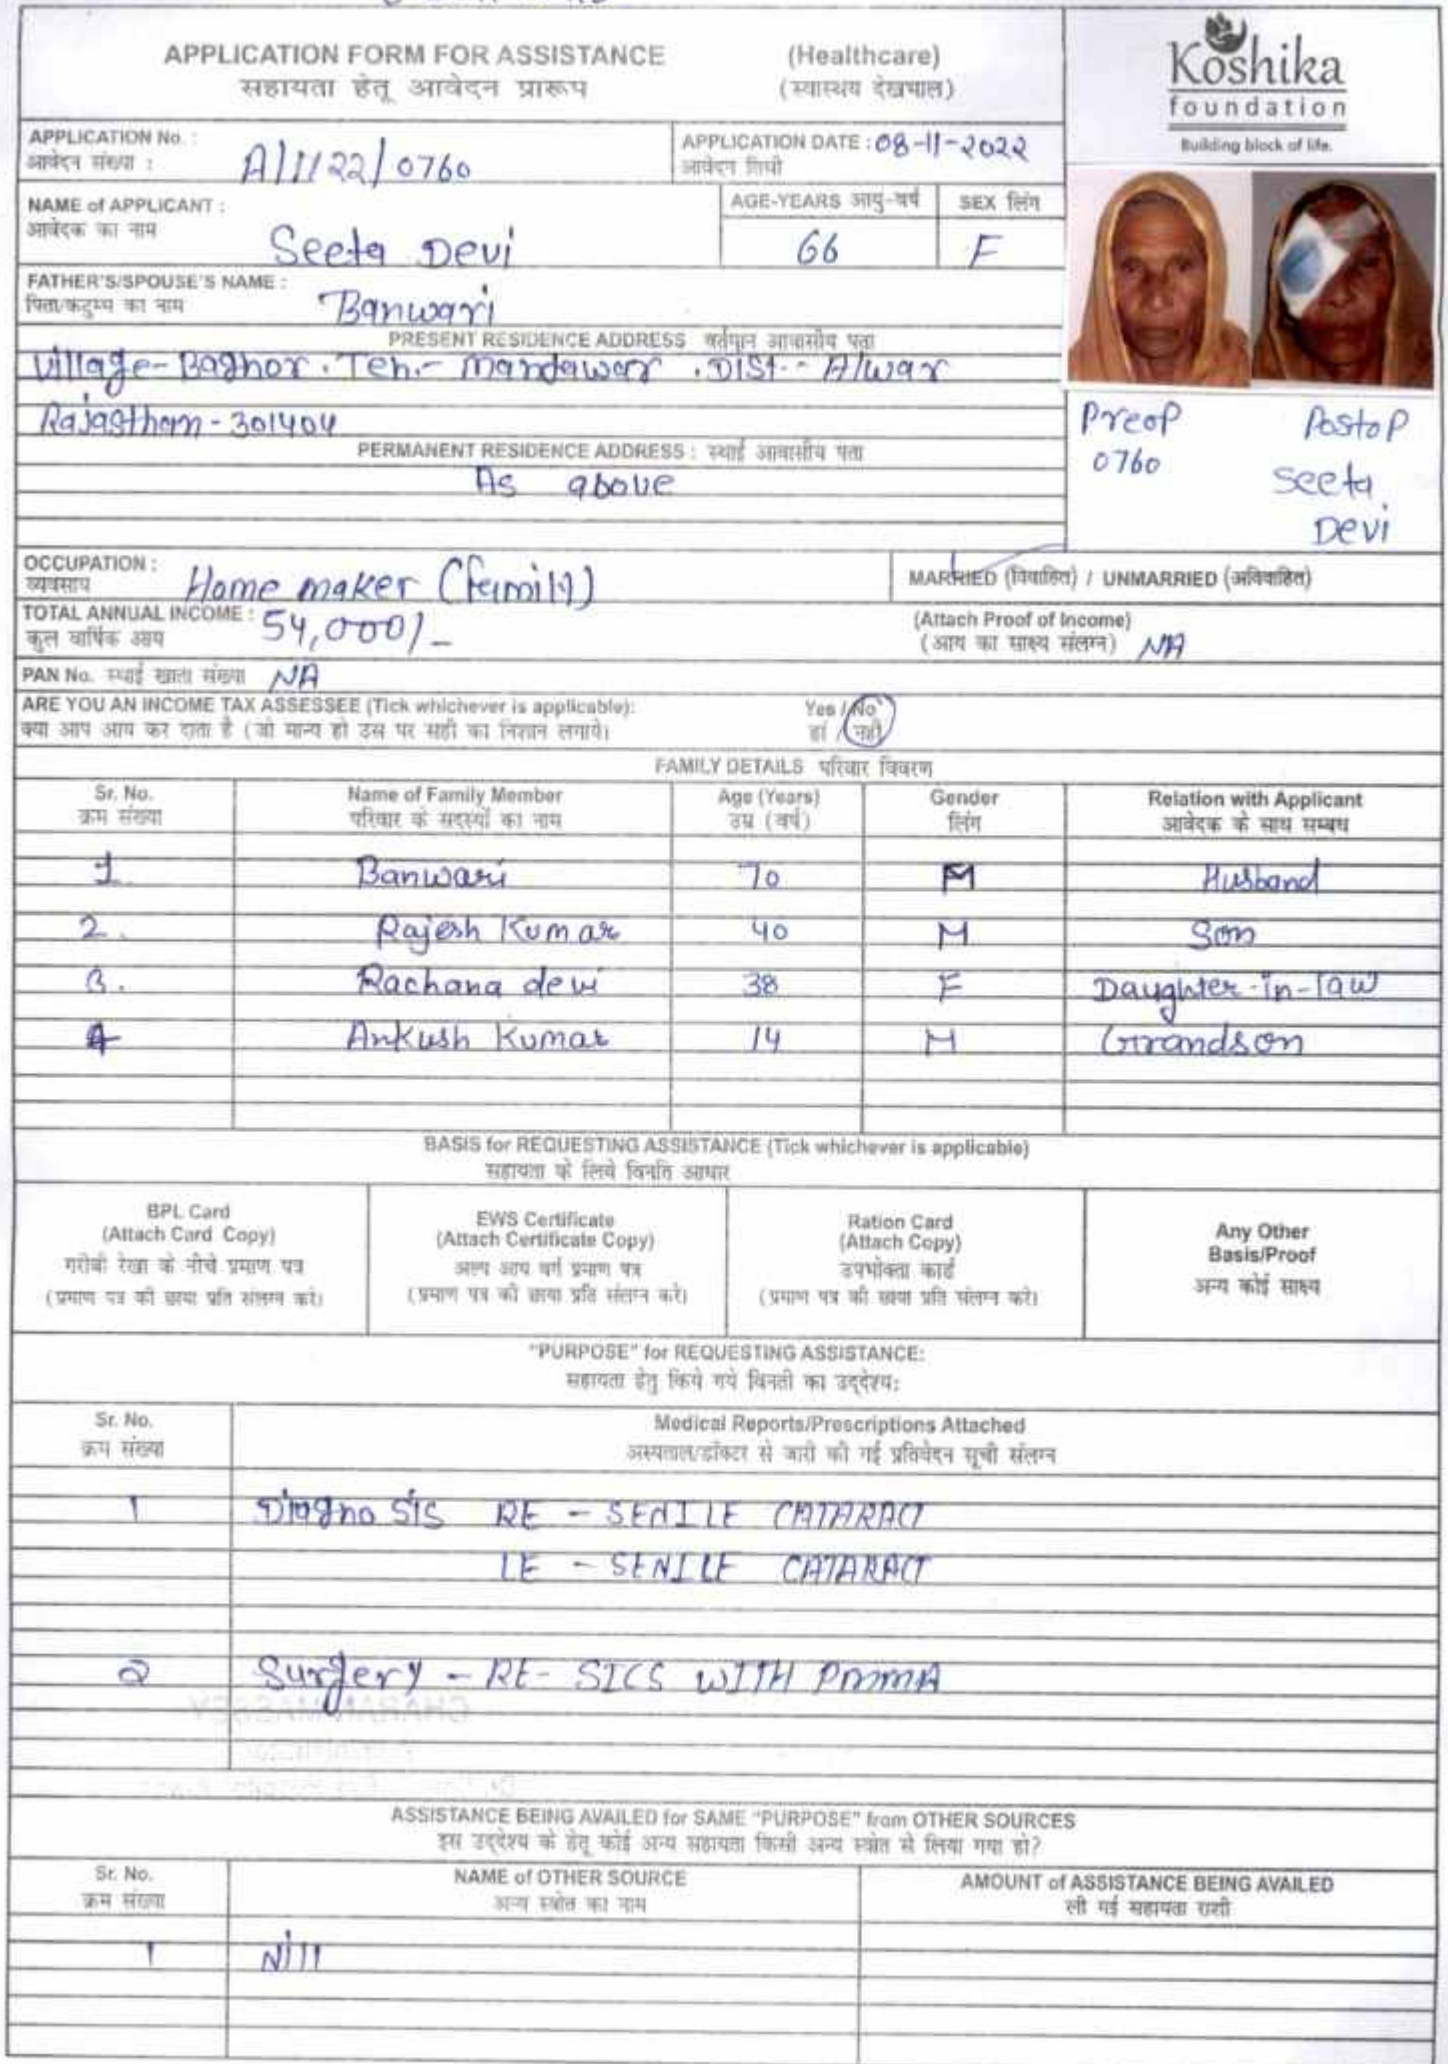 APPLICATION FORM FOR ASSISTANCE (Healthcare)
सहायता हेतू आवेदन प्रारूप (स्वास्थय देखभाल)
Koshika
foundation
Building block of life.
APPLICATION No. :
आवेदन संख्या :
A/1/22/0760
APPLICATION DATE : 08-11-2022
आवेदन तिथी
NAME of APPLICANT :
आवेदक का नाम
Seeta Devi
AGE-YEARS आयु-वर्ष
66
SEX लिंग
F
FATHER'S/SPOUSE'S NAME :
पिता/कटुम्ब का नाम
Banwari
PRESENT RESIDENCE ADDRESS वर्तमान आवासीय पता
Village- Baghor . Teh.- Mandawar . Dist.- Alwar
Rajasthan - 301404
PERMANENT RESIDENCE ADDRESS : स्थाई आवासीय पता
As above
Preop Postop
0760 Seeta
Devi
OCCUPATION :
व्यवसाय
Home maker (family)
MARRIED (विवाहित) / UNMARRIED (अविवाहित)
TOTAL ANNUAL INCOME :
कुल वार्षिक आय
54,000/-
(Attach Proof of Income)
(आय का साक्ष्य संलग्न) NA
PAN No. स्थाई खाता संख्या NA
ARE YOU AN INCOME TAX ASSESSEE (Tick whichever is applicable): Yes / No
क्या आप आय कर दाता है (जो मान्य हो उस पर सही का निशान लगाये) हां / नहीं
FAMILY DETAILS परिवार विवरण
Sr. No. Name of Family Member Age (Years) Gender Relation with Applicant
क्रम संख्या परिवार के सदस्यों का नाम उम्र (वर्ष) लिंग आवेदक के साथ सम्बध
1 Banwari 70 M Husband
2. Rajesh Kumar 40 M Son
3. Rachana devi 38 F Daughter-in-law
4 Ankush Kumar 14 M Grandson
BASIS for REQUESTING ASSISTANCE (Tick whichever is applicable)
सहायता के लिये विनति आधार
BPL Card
(Attach Card Copy)
गरीबी रेखा के नीचे प्रमाण पत्र
(प्रमाण पत्र की छाया प्रति संलग्न करे)
EWS Certificate
(Attach Certificate Copy)
अल्प आय वर्ग प्रमाण पत्र
(प्रमाण पत्र की छाया प्रति संलग्न करे)
Ration Card
(Attach Copy)
उपभोक्ता कार्ड
(प्रमाण पत्र की छाया प्रति संलग्न करे)
Any Other
Basis/Proof
अन्य कोई साक्ष्य
"PURPOSE" for REQUESTING ASSISTANCE:
सहायता हेतु किये गये विनती का उद्देश्य:
Sr. No. Medical Reports/Prescriptions Attached
क्रम संख्या अस्पताल/डॉक्टर से जारी की गई प्रतिवेदन सूची संलग्न
1 Diagnosis RE - SENILE CATARACT
LE - SENILE CATARACT
2 Surgery - RE - SICS WITH PMMA
ASSISTANCE BEING AVAILED for SAME "PURPOSE" from OTHER SOURCES
इस उद्देश्य के हेतू कोई अन्य सहायता किसी अन्य स्त्रोत से लिया गया हो?
Sr. No. NAME of OTHER SOURCE AMOUNT of ASSISTANCE BEING AVAILED
क्रम संख्या अन्य स्त्रोत का नाम ली गई सहायता राशी
1 Nill